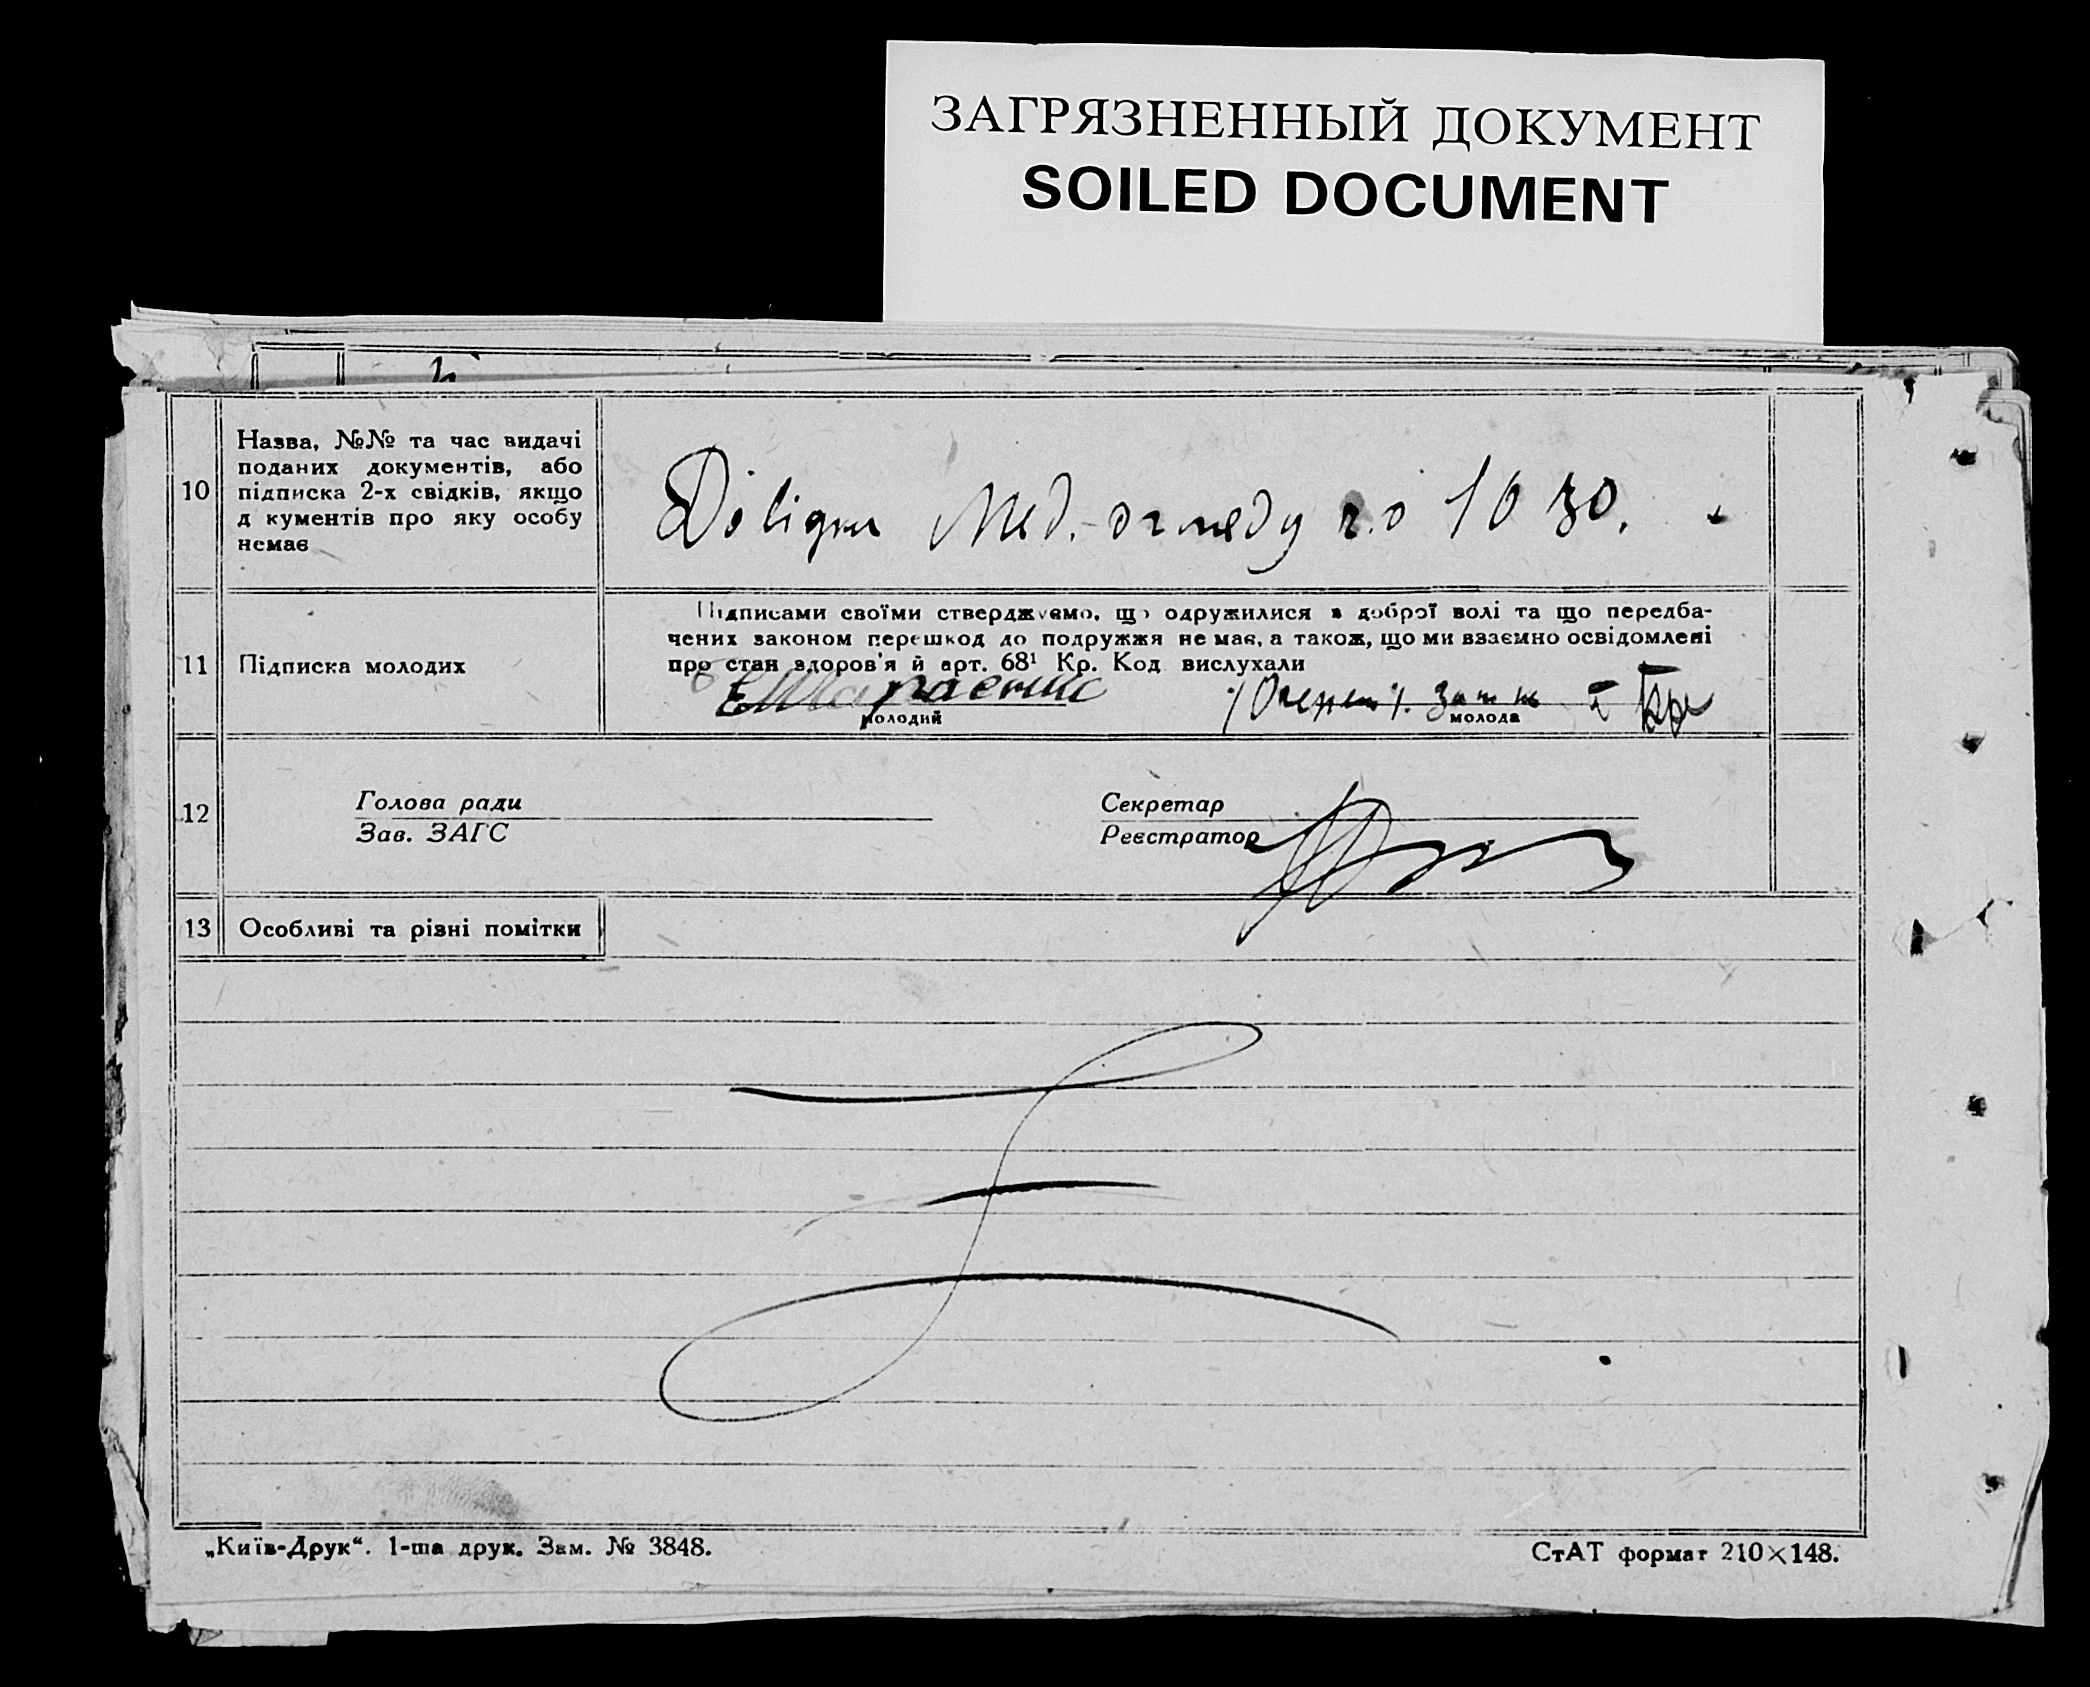 ЗАГРЯЗНЕННЫЙ ДОКУМЕНТ
SOILED DOCUMENT
10
Назва, №№ та час видачі
поданих документів, або
підписка 2-х свідків, якщо
д кументів про яку особу
немає
Мед. огляду
11
Підписка молодих
Підписами своїми стверджуємо, що одружилися з доброї волі та що передба-
чених законом перешкод до подружжя не має, а також, що ми взаємно освідомлені
про стан здоров'я й арт. 68¹ Кр. Код вислухали
молодий
молода
12
Голова ради
Зав. ЗАГС
Секретар
Реєстратор
13
Особливі та різні помітки
„Київ-Друк“. 1-ша друк. Зам. № 3848.
СтАТ формат 210×148.